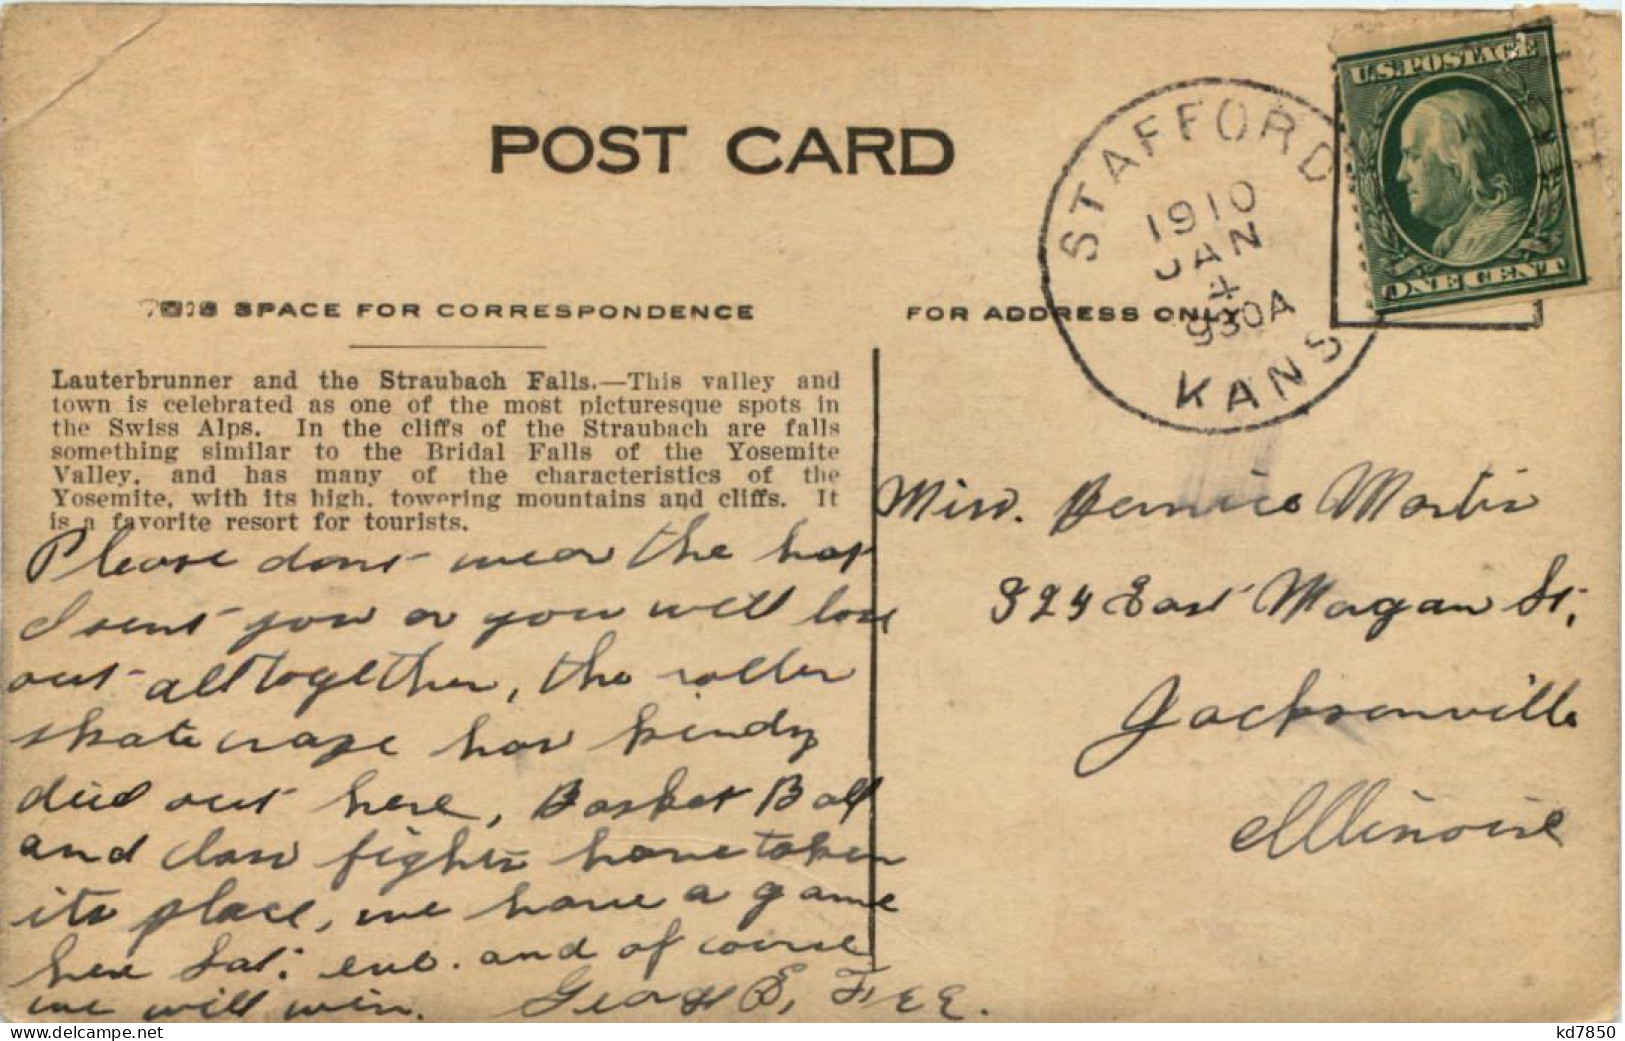 POST CARD
U.S. POSTAGE
ONE CENT
STAFFORD
1910
JAN
4
930A
KANS
THIS SPACE FOR CORRESPONDENCE
FOR ADDRESS ONLY
Lauterbrunner and the Straubach Falls.—This valley and
town is celebrated as one of the most picturesque spots in
the Swiss Alps. In the cliffs of the Straubach are falls
something similar to the Bridal Falls of the Yosemite
Valley, and has many of the characteristics of the
Yosemite, with its high, towering mountains and cliffs. It
is a favorite resort for tourists.
Please dont wear the hat
I sent you or you will lose
out alltogether, the roller
skate craze has kindy
died out here, Basket Ball
and class fights have taken
its place, we have a game
here Sat. eve. and of course
we will win. George E. Fee.
Miss. Bernice Martin
324 East Morgan St,
Jacksonville
Illinoise
kd7850